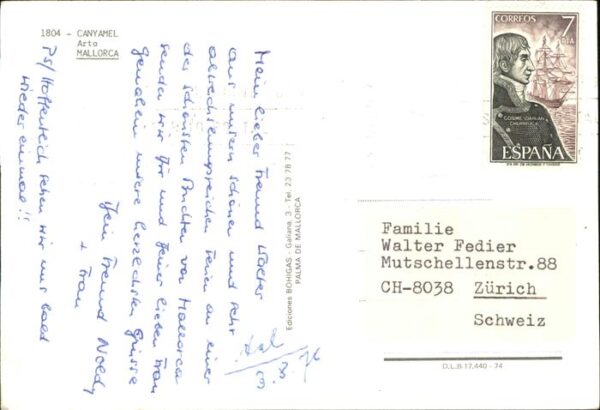 1804 - CANYAMEL
Arta
MALLORCA
Mein lieber Freund Walter
Aus unsern schönen und sehr
abwechslungsreichen Ferien an einer
der schönsten Buchten von Mallorca
senden wir Dir und Deiner lieben Frau
Gemahlin unsere herzlichsten Grüsse
Dein Freund Noldy
+ Frau
PS/Hoffentlich sehen wir uns bald
wieder einmal!!
Ediciones BOHIGAS - Galiana, 3 - Tel. 23 78 77
PALMA DE MALLORCA
CORREOS 7
PTA
COSME DAMIAN
CHURRUCA
ESPAÑA
Familie
Walter Fedier
Mutschellenstr.88
CH-8038 Zürich
Schweiz
D.L.B 17.440 - 74